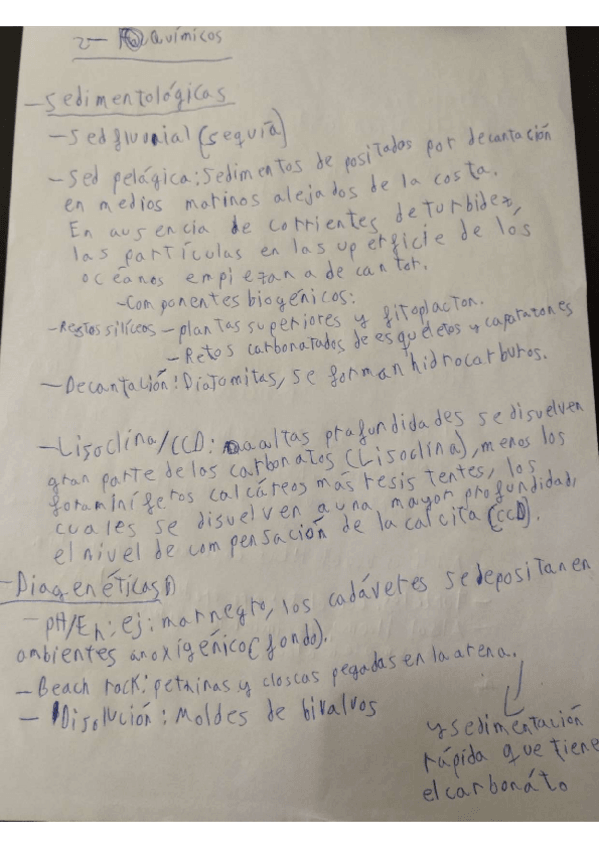 2- Químicos
- Sedimentológicas
- Sed fluvial (sequía)
- Sed pelágica: Sedimentos depositados por decantación
en medios marinos alejados de la costa.
En ausencia de corrientes de turbidez,
las partículas en la superficie de los
océanos empiezan a decantar.
- Componentes biogénicos:
- Restos silíceos - plantas superiores y fitoplacton.
- Retos carbonatados de esqueletos y caparazones
- Decantación: Diatomitas, se forman hidrocarburos.
- Lisoclina/CCD: a altas profundidades se disuelven
gran parte de los carbonatos (Lisoclina), menos los
foraminíferos calcáreos más resistentes, los
cuales se disuelven a una mayor profundidad,
el nivel de compensación de la calcita (CCD).
- Diagenéticas
- pH/Eh: ej: mar negro, los cadáveres se depositan en
ambientes anoxigénico (fondo).
- Beach rock: petxinas y closcas pegadas en la arena.
- Disolución: Moldes de bivalvos
y sedimentación
rápida que tiene
el carbonáto